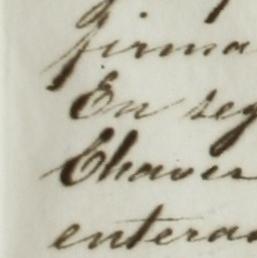 firma
En seg
Chaver
entera